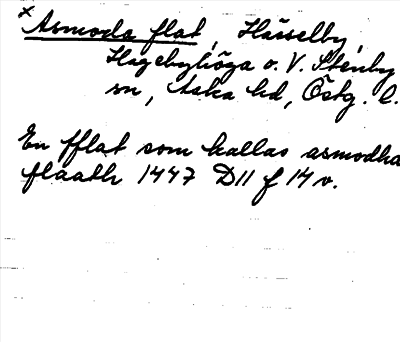 × Asmoda flat, Hässelby,
Hagebyhöga o. V. Stenby
sn, Aska hd, Östg. l.
En fflat som kallas asmodha
flaath 1447 D11 f 14 v.